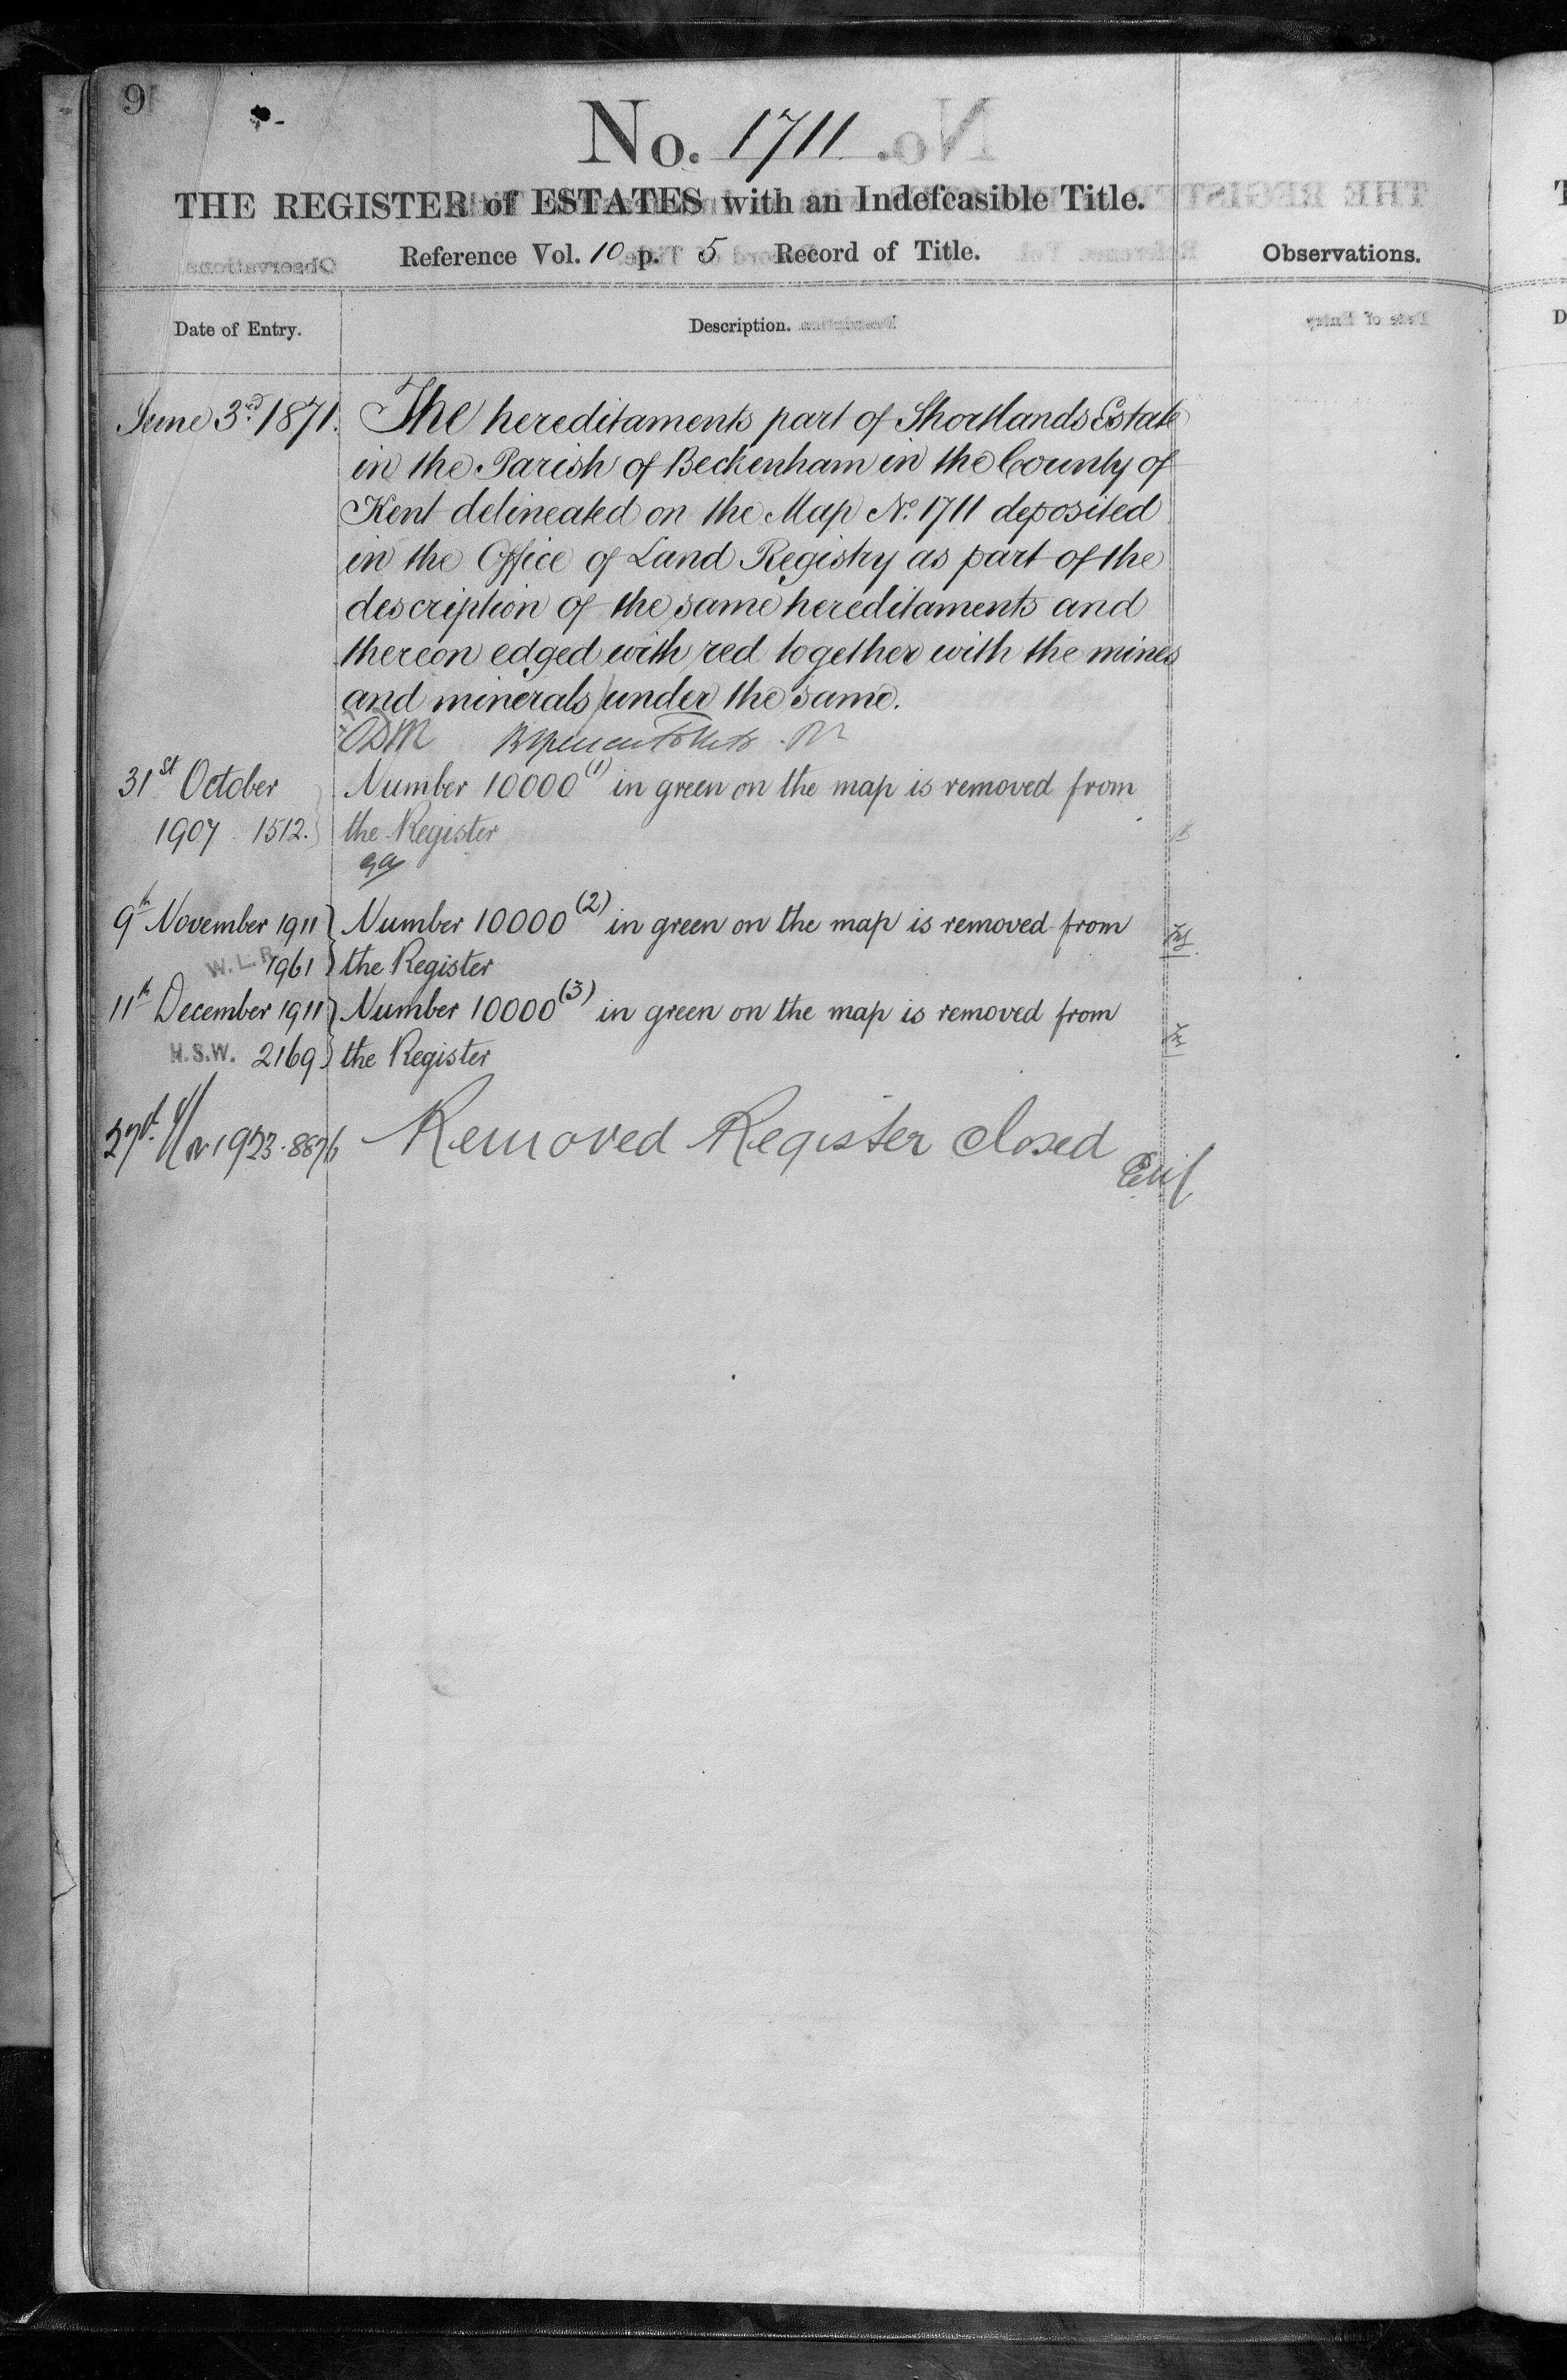 9
No. 1711
THE REGISTER of ESTATES with an Indefeasible Title.
Reference Vol. 10 p. 5 Record of Title.
Observations.
Date of Entry.
Description.
June 3rd 1871. The hereditaments part of Shortlands Estate
in the Parish of Beckenham in the County of
Kent delineated on the Map No. 1711 deposited
in the Office of Land Registry as part of the
description of the same hereditaments and
thereon edged with red together with the mines
and minerals under the same.
31st October Number 10000(1) in green on the map is removed from
1907 1512. the Register
9th November 1911 Number 10000(2) in green on the map is removed from
W.L.R. 1961 the Register
11th December 1911 Number 10000(3) in green on the map is removed from
H.S.W. 2169 the Register
1923 Removed Register closed